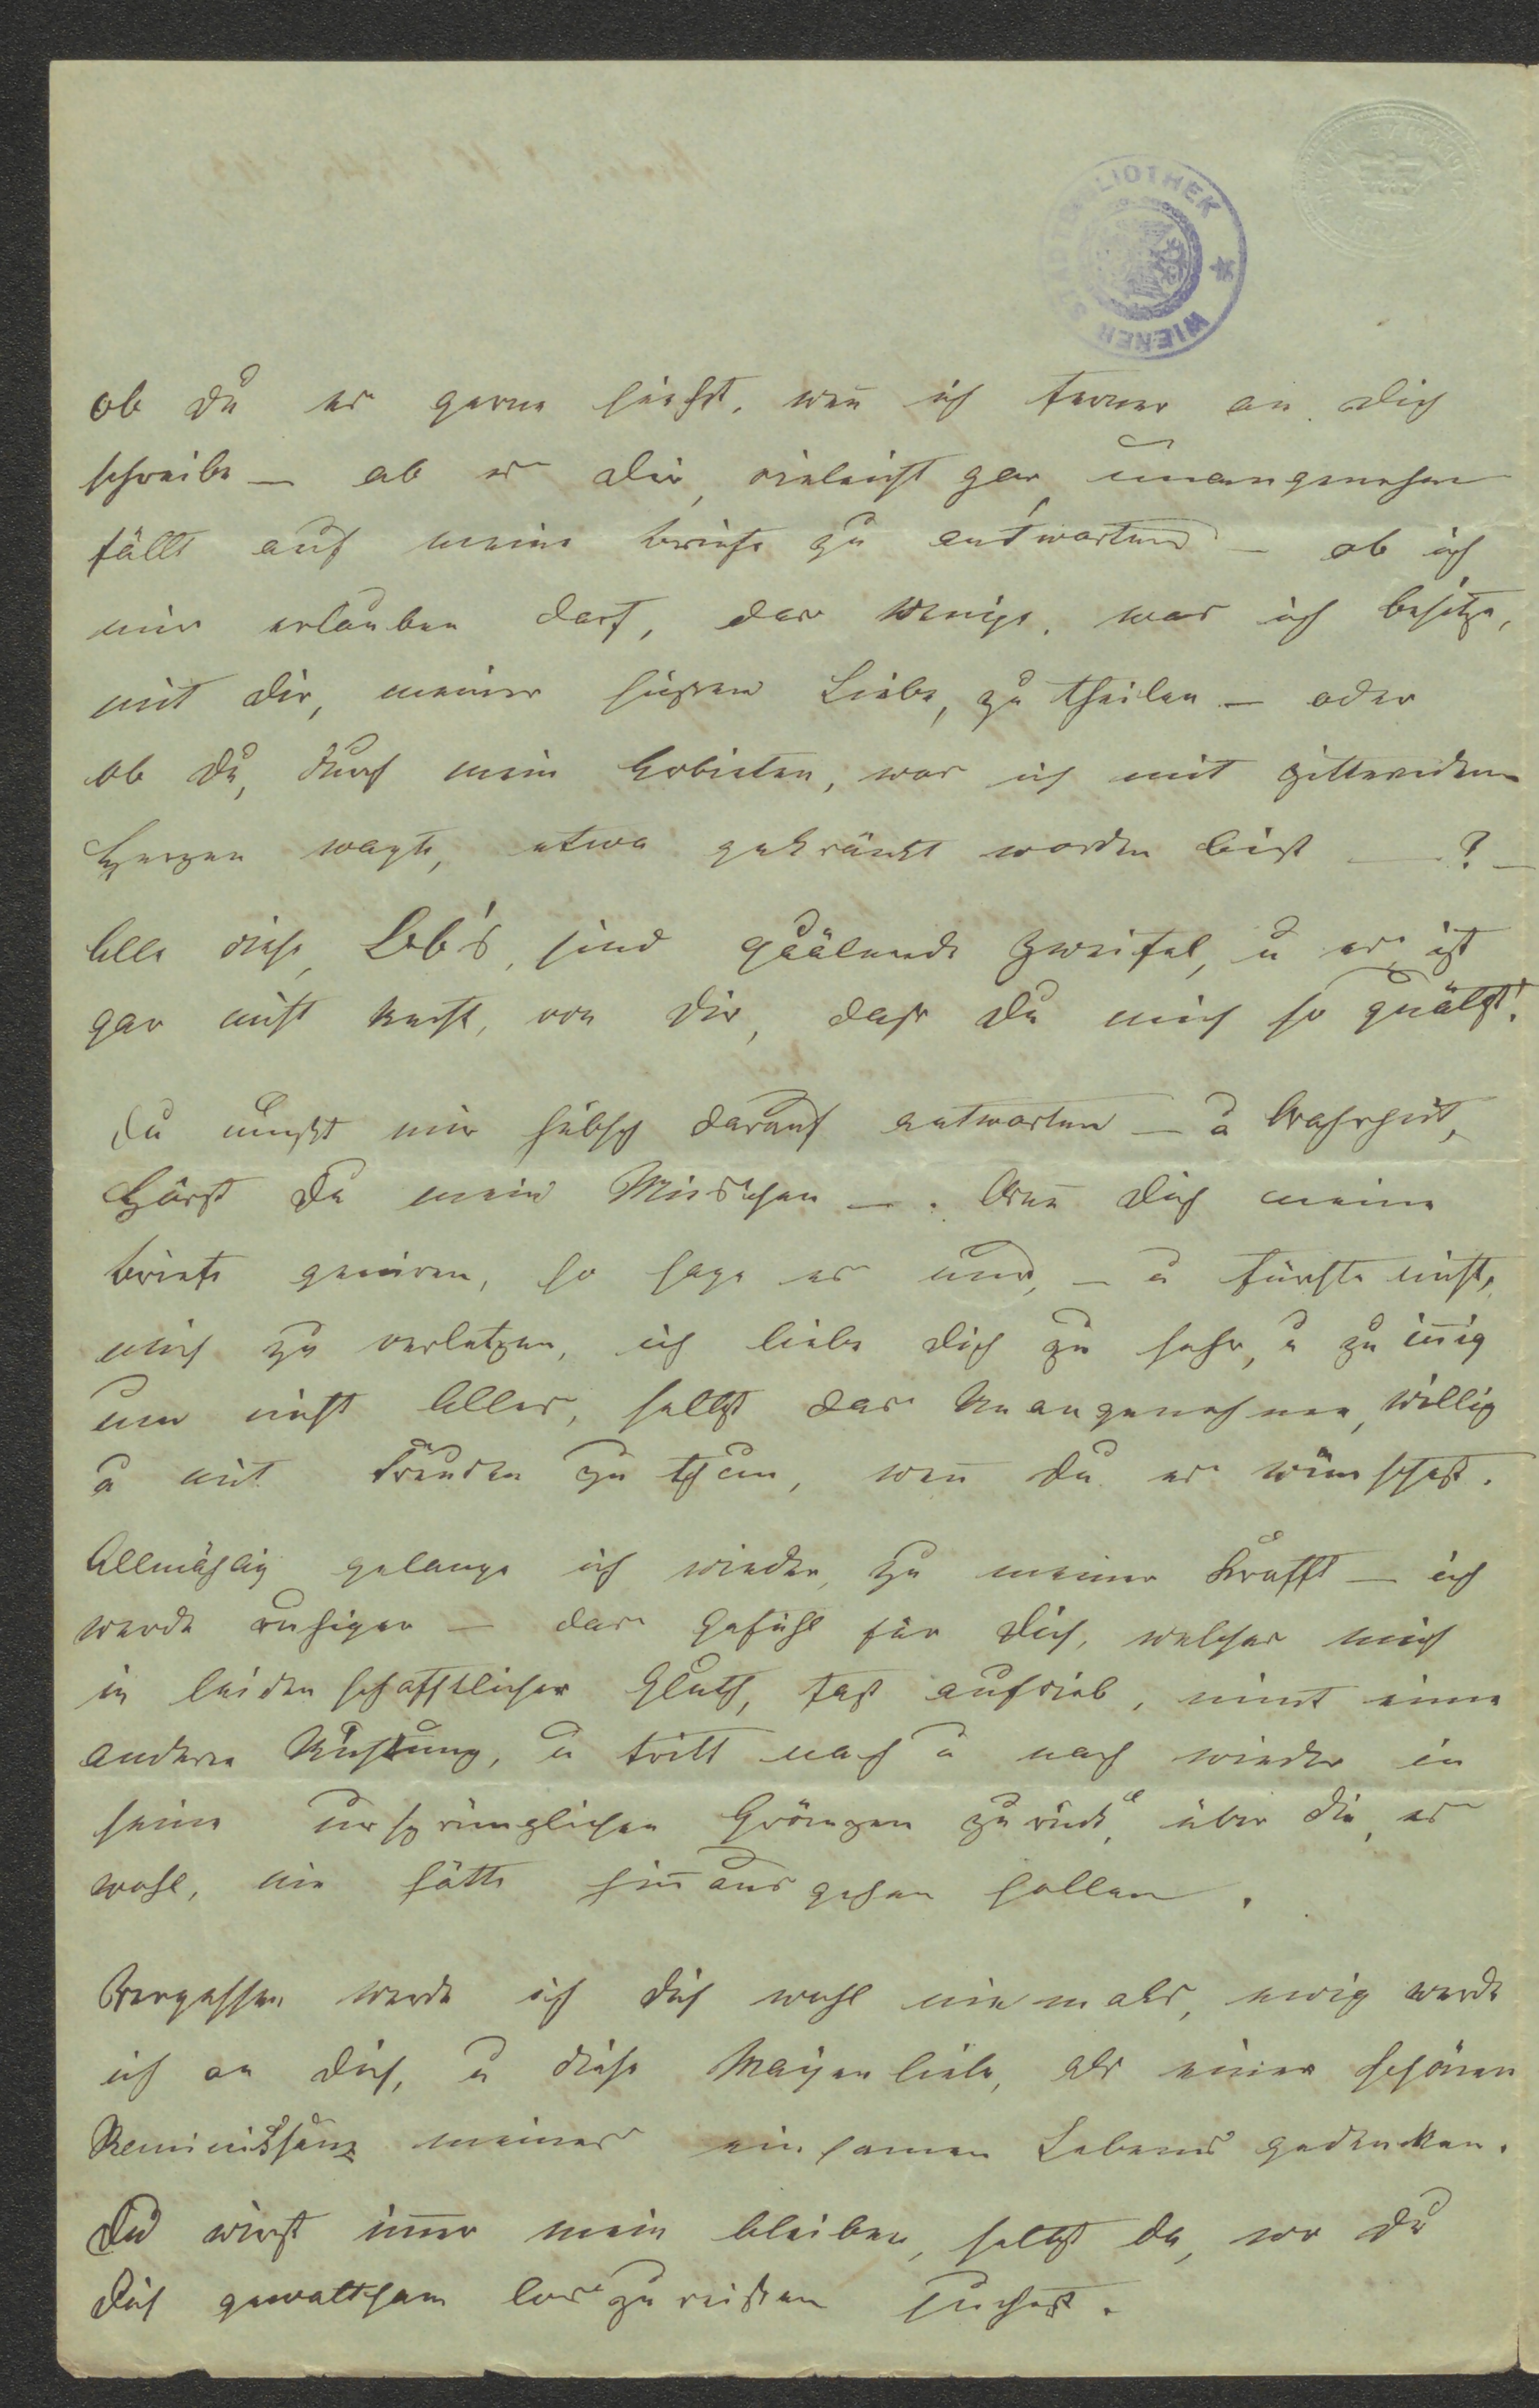 WIENER STADTBIBLIOTHEK
ob Du es gerne siehst, wen̄ ich ferner an Dich
schreibe — ob es Dir, vieleicht gar, unangenehm
fällt auf meine Briefe zu antworten — ob ich
mir erlauben darf, das Wenige, was ich besitze,
mit Dir, meiner süssen Liebe, zu theilen — oder
ob Du, durch mein Erbieten, was ich mit zitterndem
Herzen wagte, etwa gekränkt worden bist — ? —
Alle diese, Ob's, sind quälende Zweifel, u es ist
gar nicht Recht, von Dir, dass Du mich so quälst!
Du musst mir hübsch darauf antworten — u Wahrheit,
Hörst Du mein Mis'chen — . Wen̄ Dich meine
Briefe geniren, so sage es nur, — u fürchte nicht,
mich zu verletzen, ich liebe Dich zu sehr, u zu in̄ig
um nicht Alles, selbst das Unangenehme, willig
u mit Freuden zu thun, wen̄ Du es wünschest.
Allmählig gelange ich wieder, zu meiner Krafft — ich
werde ruhiger — das Gefühl für Dich, welches mich
in leidenschafftlicher Gluth, fast aufrieb, nimt eine
andere Richtung, u tritt nach u nach wieder in
seine ursprünglichen Gränzen zurück, über die, es
wohl, nie hätte hin̄ausgehen sollen.
Vergessen werde ich Dich wohl niemals, ewig werde
ich an Dich, u diese Mayenliebe, als einer schönen
Reminissenz meines einsamen Lebens gedenken.
Du wirst im̄er mein bleiben, selbst da, wo Du
Dich gewaltsam loszureissen suchest.